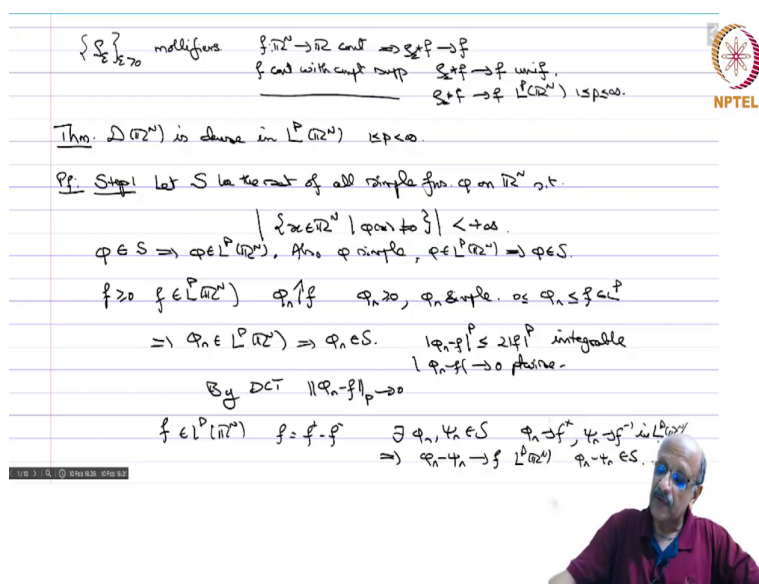 {ρ_ε}_{ε>0} mollifiers. f: ℝ^N → ℝ cont ⇒ ρ_ε*f → f
f cont with cmpt supp ρ_ε*f → f unif.
ρ_ε*f → f L^P(ℝ^N) 1≤p<∞.
NPTEL
Thm. D(ℝ^N) is dense in L^P(ℝ^N) 1≤p<∞.
Pf: Step1 Let S be the set of all simple fns. φ on ℝ^N s.t.
|{x∈ℝ^N | φ(x)≠0}| < +∞.
φ∈S ⇒ φ∈L^P(ℝ^N). Also φ simple, φ∈L^P(ℝ^N) ⇒ φ∈S.
f≥0 f∈L^P(ℝ^N) φ_n↑f φ_n≥0, φ_n simple. 0≤ φ_n ≤ f ∈L^P
⇒ φ_n∈ L^P(ℝ^N) ⇒ φ_n∈S. |φ_n-f|^P ≤ 2|f|^P integrable
|φ_n-f| → 0 ptwise.
By DCT ||φ_n-f||_p → 0
f∈L^P(ℝ^N) f = f^+ - f^- ∃ φ_n, ψ_n∈S φ_n→f^+, ψ_n→f^- in L^P(ℝ^N)
⇒ φ_n-ψ_n → f L^P(ℝ^N) φ_n-ψ_n ∈S.
1/10 10 Feb 16:26 10 Feb 16:31